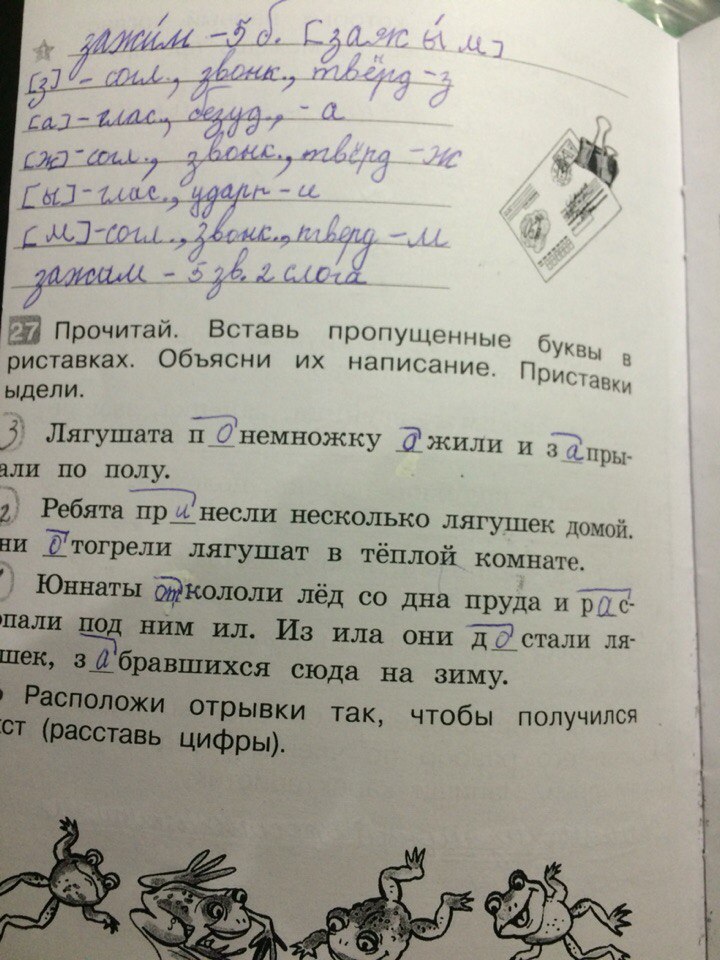 зажи́м – 5 б. [заж ы́ м]
[з] - согл., звонк., твёрд - з
[а] - глас., безуд., - а
[ж] - согл., звонк., твёрд - ж
[ы] - глас., ударн - и
[м] - согл., звонк., тверд - м
зажим - 5 зв. 2 слога
27 Прочитай. Вставь пропущенные буквы в
риставках. Объясни их написание. Приставки
ыдели.
3 Лягушата понемножку ажили и запры-
али по полу.
2 Ребята принесли несколько лягушек домой.
ни отогрели лягушат в тёплой комнате.
1 Юннаты откололи лёд со дна пруда и рас-
опали под ним ил. Из ила они достали ля-
шек, забравшихся сюда на зиму.
Расположи отрывки так, чтобы получился
кст (расставь цифры).